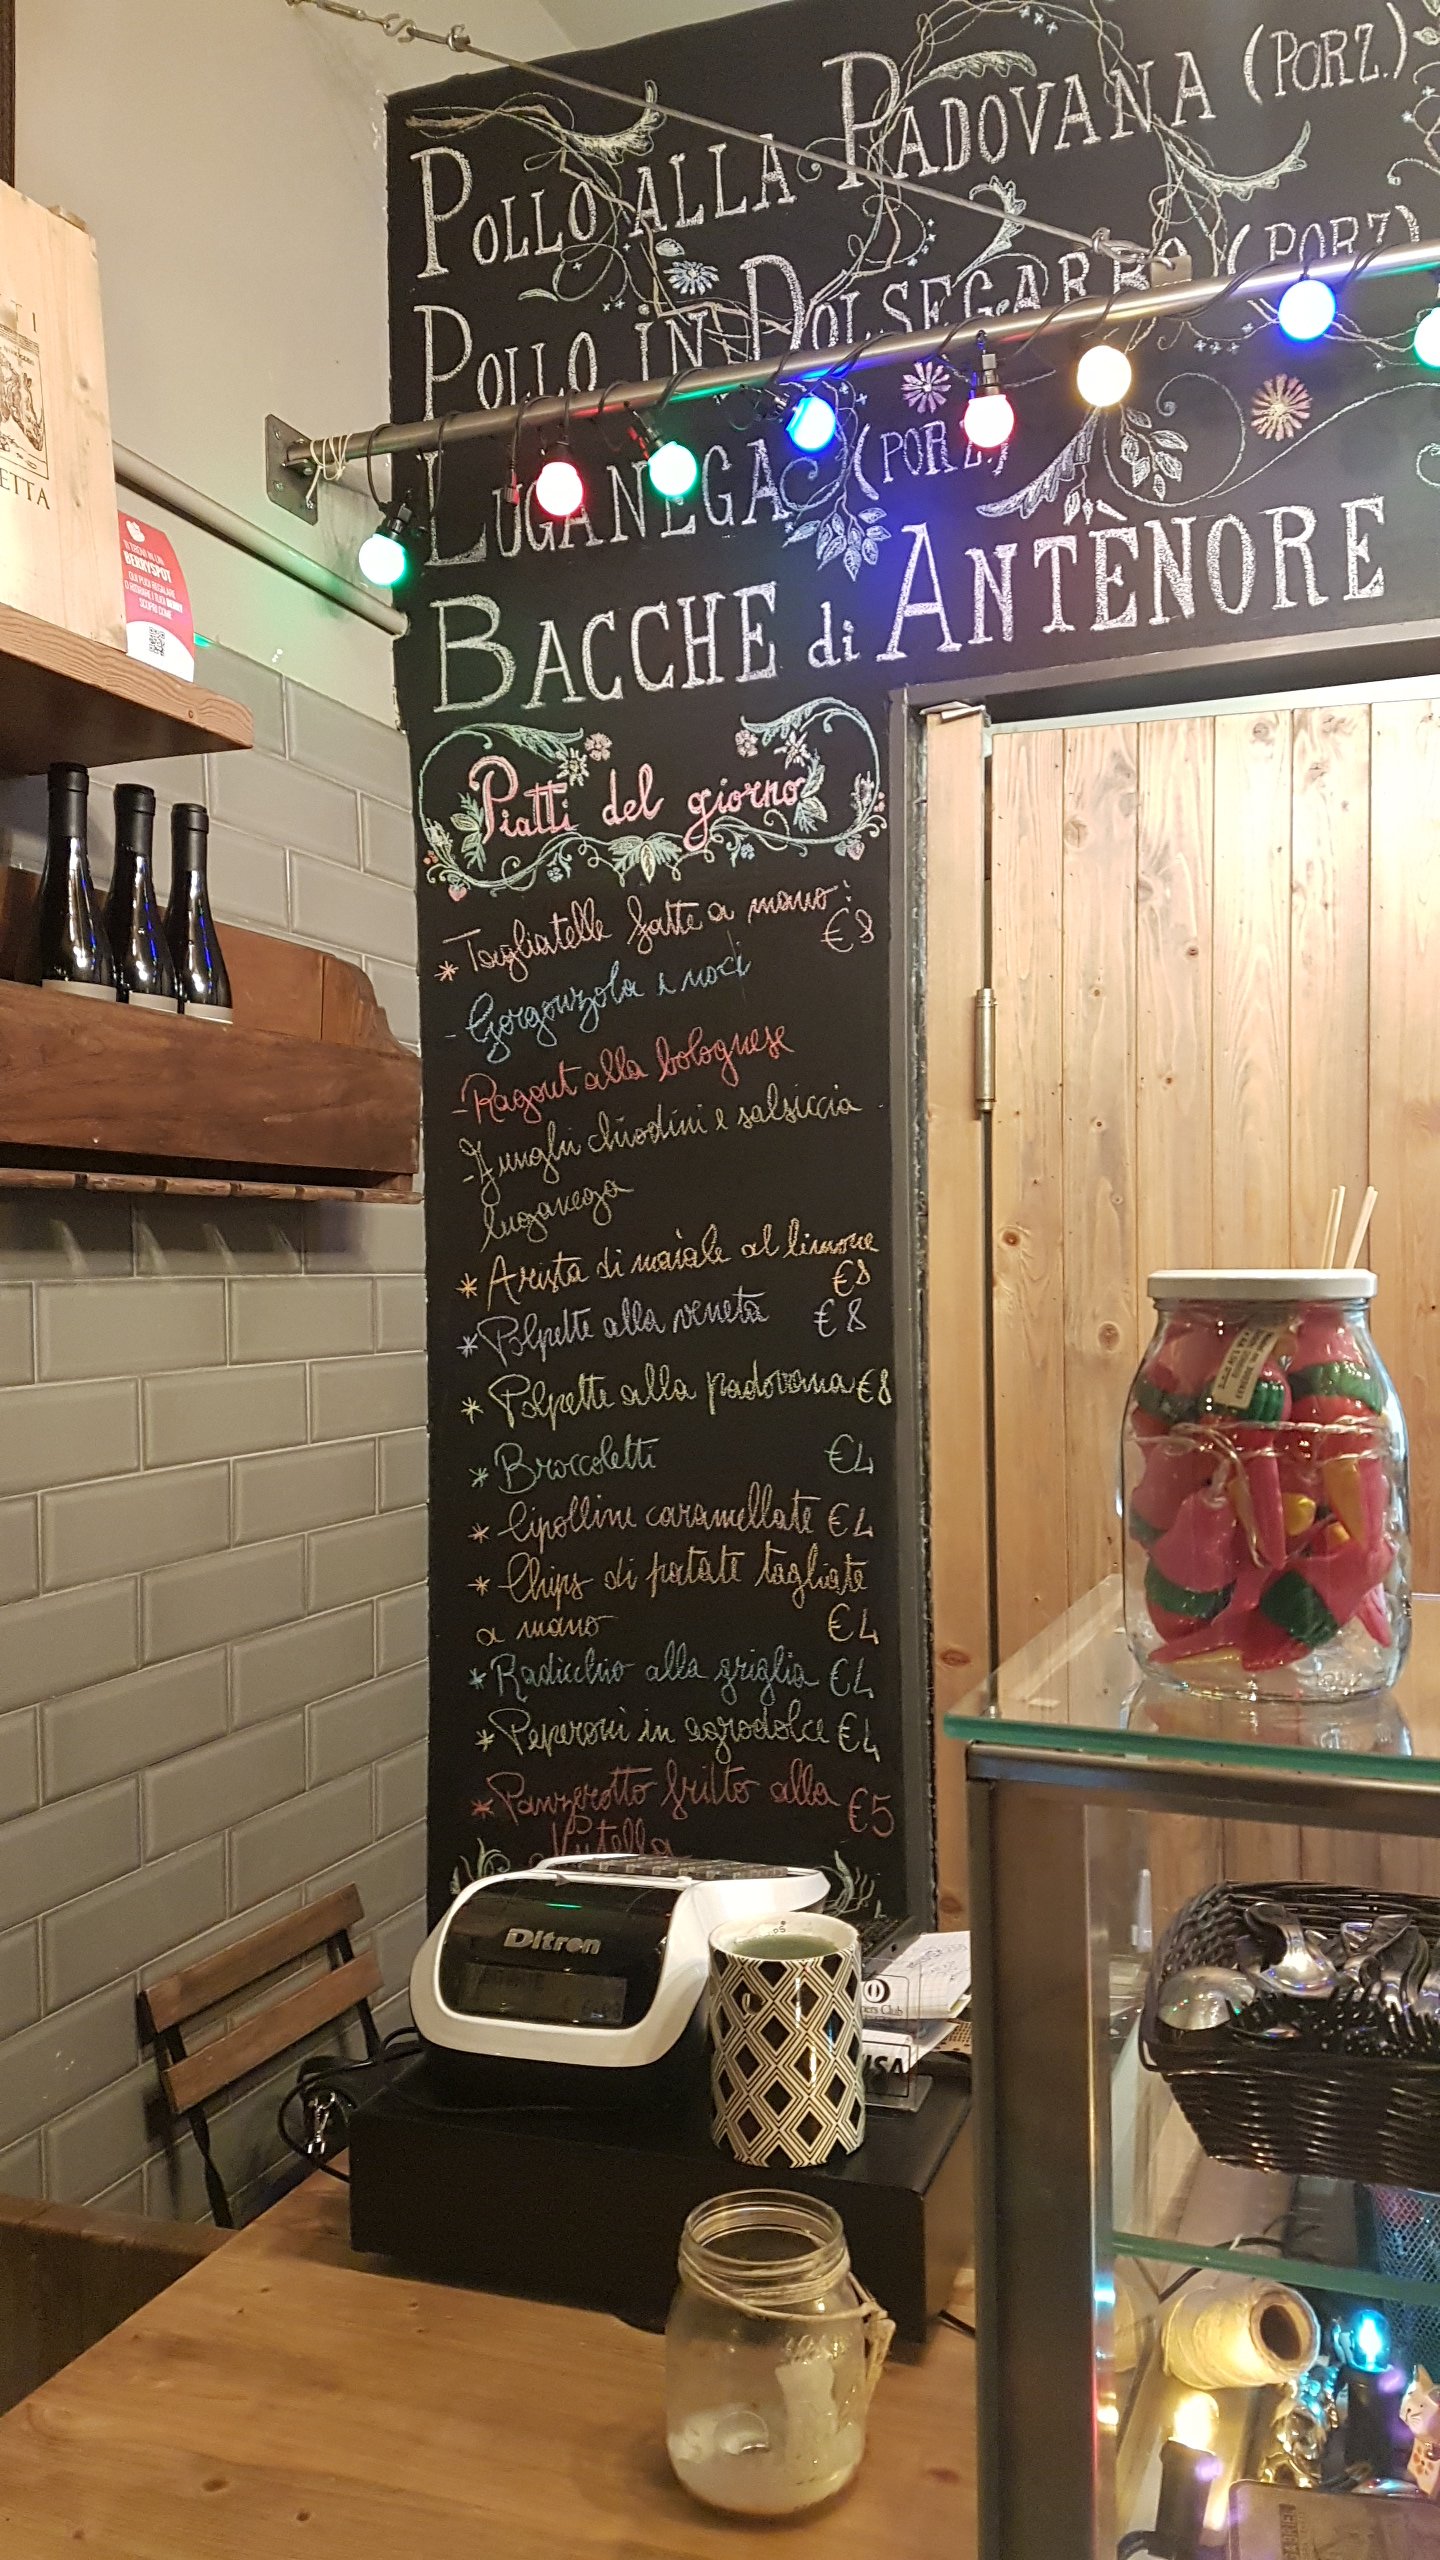 POLLO ALLA PADOVANA (PORZ.)
POLLO IN DOLSEGARBO (PORZ)
LUGANEGA (PORZ.)
BACCHE di ANTÈNORE
Piatti del giorno
* Tagliatelle fatte a mano:
€8
- Gorgonzola e noci
- Ragout alla bolognese
- Funghi chiodini e salsiccia
luganega
* Arista di maiale al limone
€8
* Polpette alla veneta €8
* Polpette alla padovana €8
* Broccoletti €4
* Cipolline caramellate €4
* Chips di patate tagliate
a mano €4
* Radicchio alla griglia €4
* Peperoni in agrodolce €4
* Panzerotto fritto alla €5
Nutella
ETTA
TI TROVI IN UN
BERRYSPOT
QUI PUOI REGALARE
O RITIRARE I TUOI BERRY
SCOPRI COME
Ditron
ers Club
ISA